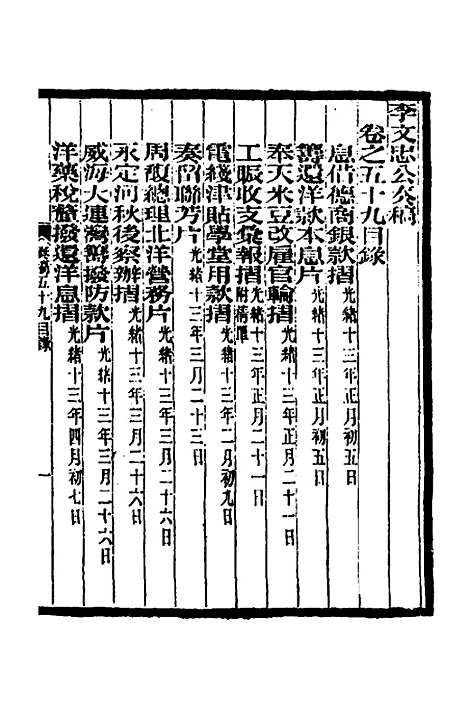 李文忠公奏稿
卷之五十九目錄
息借德商銀款摺 光緒十三年正月初五日
籌還洋款本息片 光緒十三年正月初五日
奉天米豆改雇官輪摺 光緒十三年正月二十一日
工賑收支彙報摺 附清單 光緒十三年正月二十一日
電綫津貼學堂用款摺 光緒十三年二月初九日
奏留聯芳片 光緒十三年三月二十三日
周馥總理北洋營務片 光緒十三年三月二十六日
永定河秋後察辦摺 光緒十三年三月二十六日
威海大連灣籌撥防款片 光緒十三年三月二十六日
洋藥稅釐撥還洋息摺 光緒十三年四月初七日
奏稿五十九目錄 一